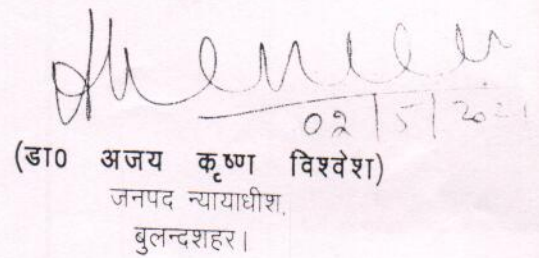 02/5/2021
(डा0 अजय कृष्ण विश्वेश)
जनपद न्यायाधीश,
बुलन्दशहर।